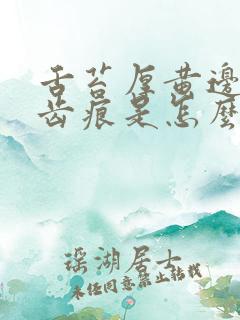 舌苔厚黄边
齿痕是怎么
瑶湖居士
未经同意禁止转载